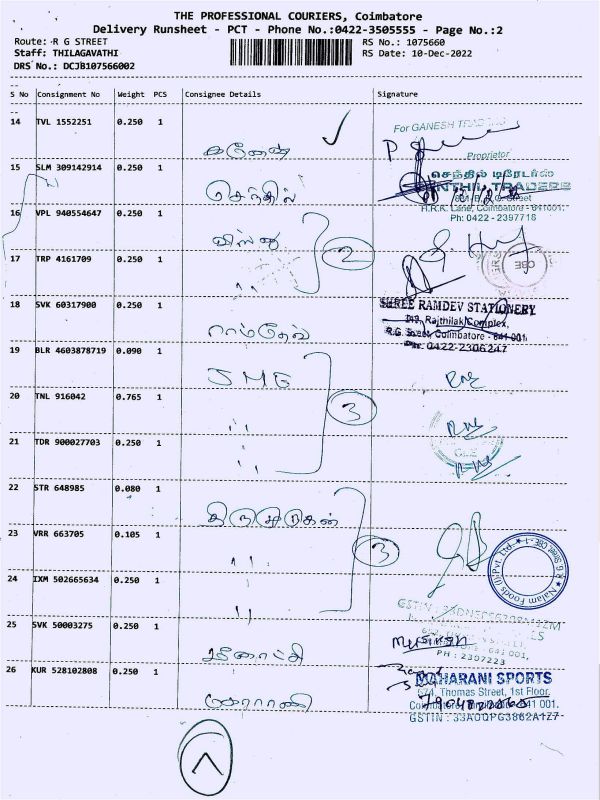 THE PROFESSIONAL COURIERS, Coimbatore
Delivery Runsheet - PCT - Phone No.:0422-3505555 - Page No.:2
Route: R G STREET
RS No.: 1075660
Staff: THILAGAVATHI
RS Date: 10-Dec-2022
DRS No.: DCJB107566002
S No Consignment No Weight PCS Consignee Details Signature
14 TVL 1552251 0.250 1 கணேஷ்
For GANESH TRADING
Proprietor
15 SLM 309142914 0.250 1 செந்தில்
செந்தில் டிரேடர்ஸ்
SENTHIL TRADERS
H.R.K. Lane, Coimbatore - 641001.
Ph: 0422 - 2397718
16 VPL 940554647 0.250 1
2
17 TRP 4161709 0.250 1 ,,
CBE
18 SVK 60317900 0.250 1 ராம்தேவ்
SHREE RAMDEV STATIONERY
149, Rajthilak Complex,
R.G. Street, Coimbatore - 641 001
Ph: 0422-2306247
19 BLR 4603878719 0.090 1 JMG
20 TNL 916042 0.765 1 ,,
3
21 TDR 900027703 0.250 1 ,,
22 STR 648985 0.080 1 திருமுருகன்
23 VRR 663705 0.105 1 ,,
3
Nalam Foods (I) Pvt. Ltd.
24 IXM 502665634 0.250 1 ,,
25 SVK 50003275 0.250 1 மீனாட்சி
PH : 2397223
26 KUR 528102808 0.250 1 மகாராணி
MAHARANI SPORTS
674, Thomas Street, 1st Floor,
GSTIN : 33AOQPG3862A1Z7